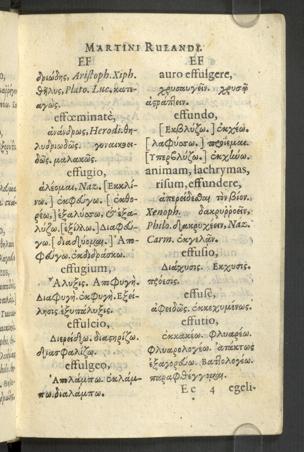 MARTINI RULANDI.
EF
δριώδης, Aristoph. Xiph.
θῆλυς, Plato. Luc. κατε-
αγώς.
effœminatè,
ἀνάνδρως, Herodi. θη-
λυδριωδῶς. γυναικοει-
δῶς. μαλακῶς.
effugio,
ἀλέομαι, Naz. [Ἐκκλί-
νω.] ἐκφεύγω. [ἐκθο-
Διαφεύ-
γω.
φεύγω. ἐκδιδράσκω.
effugium,
Ἄλυξις. Αποφυγὴ.
Διαφυγὴ. ἐκφυγὴ.
effulcio,
Διερείδω. διαστηρίζω.
διασφαλίζω.
effulgeo,
Ἀπολάμπω. ἐκλάμ-
πω. διαλάμπω.
EF
auro effulgere,
χρυσαυγεῖν. χρυσῷ
ἀστράπτειν.
effundo,
[Ἐκβλύζω.] ἐκχέω.
[λαφύσσω.]
[Ὑπερβλύζω.] ἐκχύνω.
animam, lachrymas,
risum, effundere,
ἀπερείδεσθαι τὸν βίον.
Xenoph. δακρυῤῥοεῖν,
Philo. δακρυχέειν, Naz.
Carm. ἐκγελᾶν.
effusio,
Διάχυσις. Εκχυσις.
πρόεσις.
effusè,
ἀφειδῶς. ἐκκεχυμένως.
effutio,
Φλυαρέω.
Φλυαρολογέω. ἀτάκτως
ἐξαγορεύω. Βαττολογέω.
παραφθέγγομαι.
Ee 4 egeli-